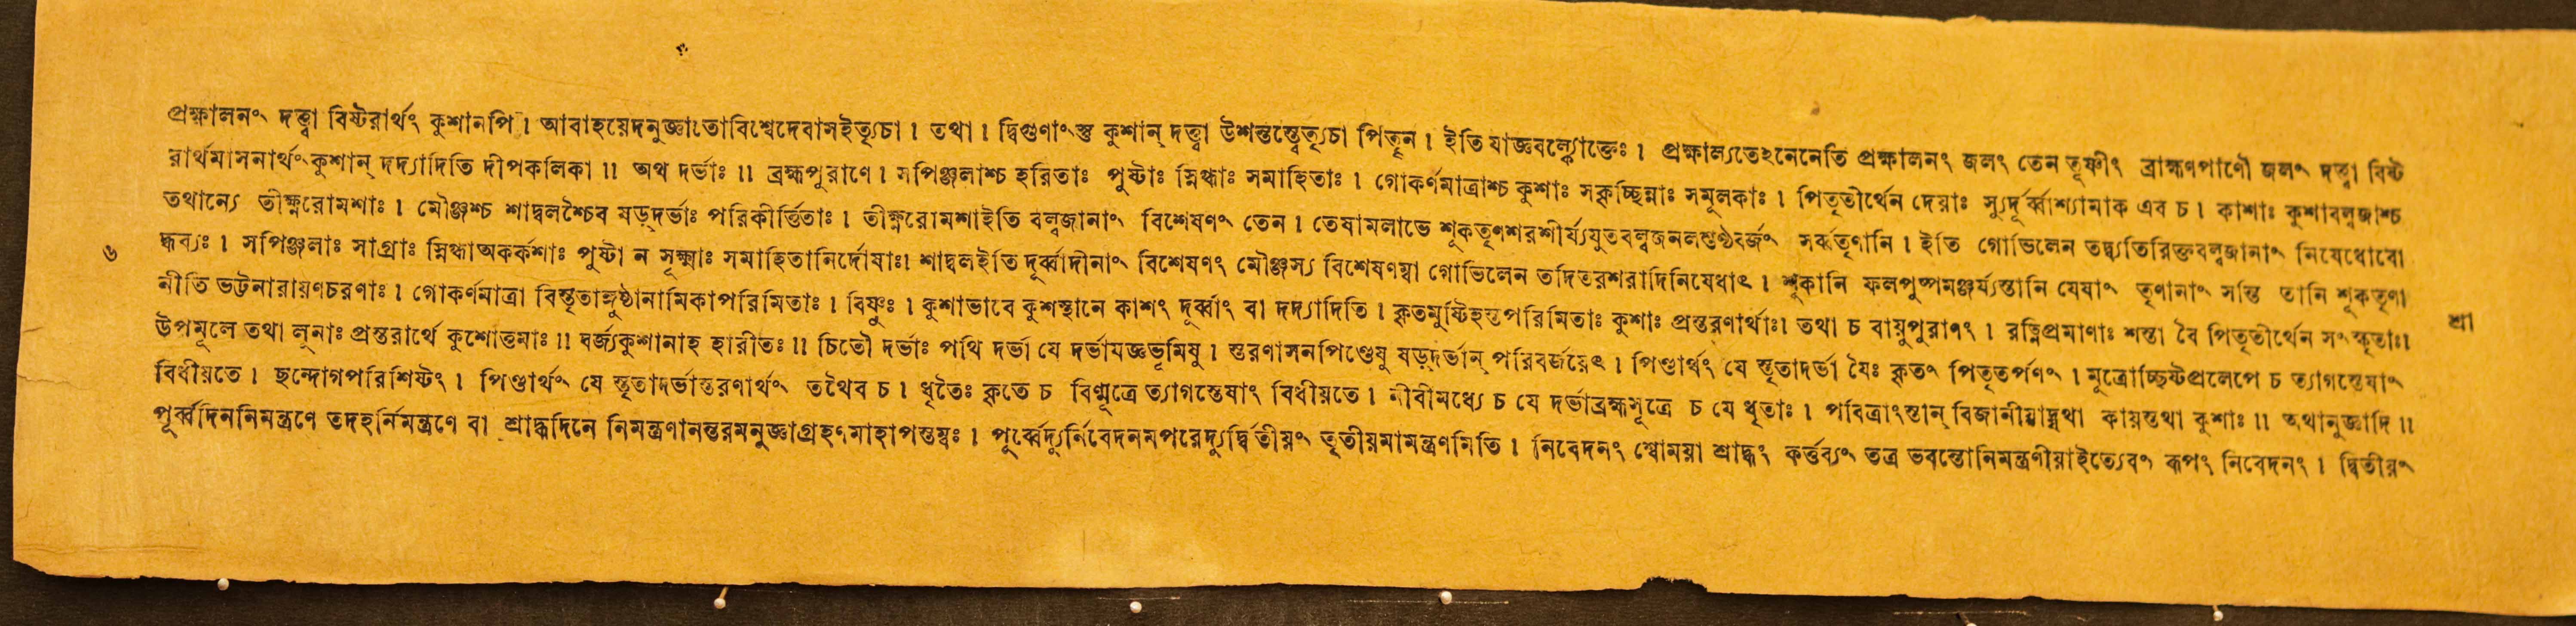 প্রক্ষালনং দত্ত্বা বিষ্টরার্থং কুশানপি। আবাহয়েদনুজ্ঞাতোবিশ্বেদেবাসইত্যৃচা। তথা। দ্বিগুণাংস্তু কুশান্ দত্ত্বা উশন্তস্ত্বেত্যৃচা পিতৄন। ইতি যাজ্ঞবল্ক্যোক্তেঃ। প্রক্ষাল্যতেঽনেনেতি প্রক্ষালনং জলং তেন তূষ্ণীং ব্রাহ্মণপাণৌ জলং দত্ত্বা বিষ্ট
রার্থমাসনার্থং কুশান্ দদ্যাদিতি দীপকলিকা॥ অথ দর্ভাঃ॥ ব্রহ্মপুরাণে। সপিঞ্জলাশ্চ হরিতাঃ পুষ্টাঃ স্নিগ্ধাঃ সমাহিতাঃ। গোকর্ণমাত্রাশ্চ কুশাঃ সকৃচ্ছিন্নাঃ সমূলকাঃ। পিতৃতীর্থেন দেয়াঃ স্যুর্দূর্ব্বাশ্যামাক এব চ। কাশাঃ কুশাবল্বজাশ্চ
তথান্যে তীক্ষ্ণরোমশাঃ। মৌঞ্জশ্চ শাদ্বলশ্চৈব ষড়্দর্ভাঃ পরিকীর্ত্তিতাঃ। তীক্ষ্ণরোমশাইতি বল্বজানাং বিশেষণং তেন। তেষামলাভে শূকতৃণশরশীর্য্যযুতবল্বজনলশুণ্ঠবর্জং সর্ব্বতৃণানি। ইতি গোভিলেন তদ্ব্যতিরিক্তবল্বজানাং নিষেধোবো
দ্ধব্যঃ। সপিঞ্জলাঃ সাগ্রাঃ স্নিগ্ধাঅকর্কশাঃ পুষ্টা ন সূক্ষ্মাঃ সমাহিতানির্দোষাঃ। শাদ্বলইতি দূর্ব্বাদীনাং বিশেষণং মৌঞ্জস্য বিশেষণম্বা গোভিলেন তদিতরশরাদিনিষেধাৎ। শূকানি ফলপুষ্পমঞ্জর্য্যন্তানি যেষাং তৃণানাং সন্তি তানি শূকতৃণা
৬
নীতি ভট্টনারায়ণচরণাঃ। গোকর্ণমাত্রা বিস্তৃতাঙ্গুষ্ঠানামিকাপরিমিতাঃ। বিষ্ণুঃ। কুশাভাবে কুশস্থানে কাশং দূর্ব্বাং বা দদ্যাদিতি। কৃতমুষ্টিহস্তপরিমিতাঃ কুশাঃ প্রস্তরণার্থাঃ। তথা চ বায়ুপুরাণং। রত্নিপ্রমাণাঃ শস্তা বৈ পিতৃতীর্থেন সংস্কৃতাঃ।
শ্রা
উপমূলে তথা লূনাঃ প্রস্তরার্থে কুশোত্তমাঃ॥ বর্জ্যকুশানাহ হারীতঃ॥ চিতৌ দর্ভাঃ পথি দর্ভা যে দর্ভাযজ্ঞভূমিষু। স্তরণাসনপিণ্ডেষু ষড়্দর্ভান্ পরিবর্জয়েৎ। পিণ্ডার্থং যে স্তৃতাদর্ভা যৈঃ কৃতং পিতৃতর্পণং। মূত্রোচ্ছিষ্টপ্রলেপে চ ত্যাগস্তেষাং
বিধীয়তে। ছন্দোগপরিশিষ্টং। পিণ্ডার্থং যে স্তৃতাদর্ভাস্তরণার্থং তথৈব চ। ধৃতৈঃ কৃতে চ বিণ্মূত্রে ত্যাগস্তেষাং বিধীয়তে। নীবীমধ্যে চ যে দর্ভাব্রহ্মসূত্রে চ যে ধৃতাঃ। পবিত্রাংস্তান্ বিজানীয়াদ্যথা কায়স্তথা কুশাঃ॥ অথানুজ্ঞাদি॥
পূর্ব্বদিননিমন্ত্রণে তদহর্নিমন্ত্রণে বা শ্রাদ্ধদিনে নিমন্ত্রণানন্তরমনুজ্ঞাগ্রহণমাহাপস্তম্বঃ। পূর্ব্বেদ্যুর্নিবেদনমপরেদ্যুর্দ্বিতীয়ং তৃতীয়মামন্ত্রণমিতি। নিবেদনং শ্বোময়া শ্রাদ্ধং কর্ত্তব্যং তত্র ভবন্তোনিমন্ত্রণীয়াইত্যেবং রূপং নিবেদনং। দ্বিতীয়ং